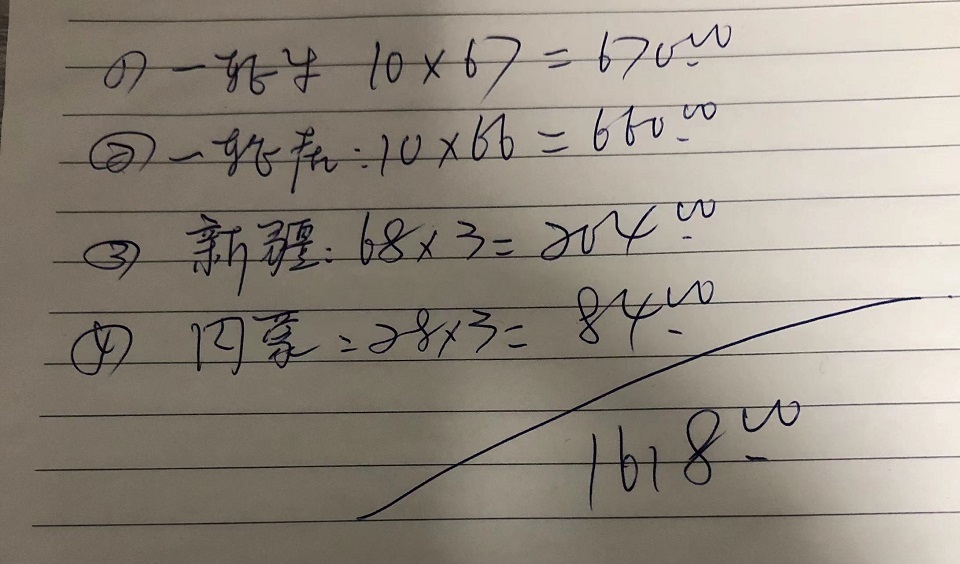 ① 一张 10×67=670.00
② 一张 :10×66=660.00
③ 新疆:68×3=204.00
④ 内蒙:28×3=84.00
1618.00